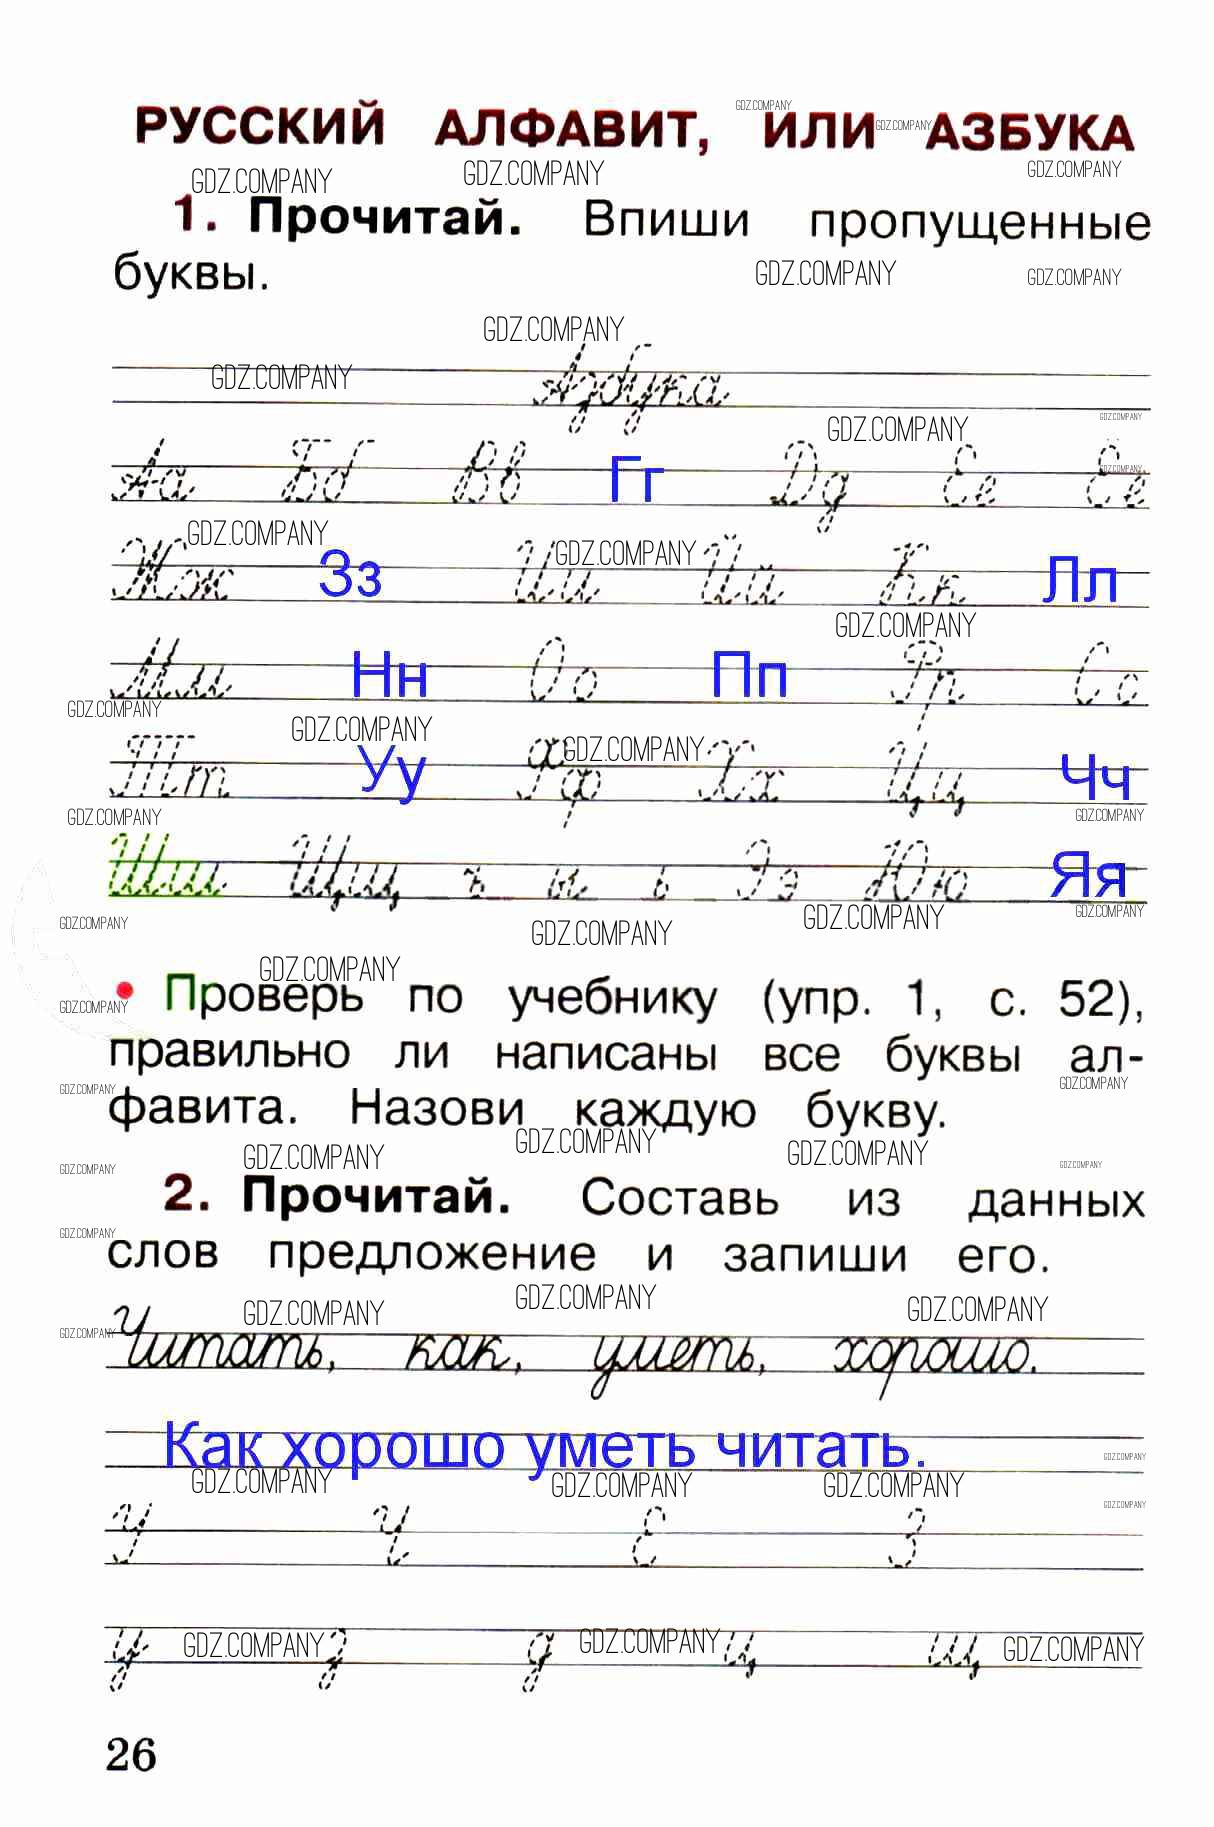 РУССКИЙ АЛФАВИТ, ИЛИ АЗБУКА
1. Прочитай. Впиши пропущенные
буквы.
Азбука
Аа Бб Вв Гг Дд Ее Ёё
Жж Зз Ии Йй Кк Лл
Мм Нн Оо Пп Рр Сс
Тт Уу Фф Хх Цц Чч
Шш Щщ ъ ы ь Ээ Юю Яя
• Проверь по учебнику (упр. 1, с. 52),
правильно ли написаны все буквы ал-
фавита. Назови каждую букву.
2. Прочитай. Составь из данных
слов предложение и запиши его.
Читать, как, уметь, хорошо.
Как хорошо уметь читать.
У Ч Е З
у з д ц щ
26
GDZ.COMPANY